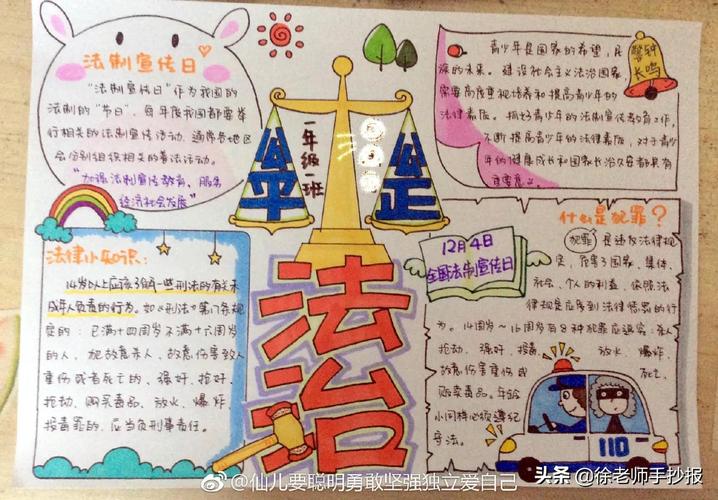 法制宣传日
"法制宣传日"作为我国的
法制的"节日"，每年度我国都要举
行相关的法制宣传活动，通常各地区
会分别组织相关的普法活动。
"加强法制宣传教育、服务
经济社会发展"
一年级一班
公平
公正
法治
青少年是国家的希望，民
族的未来。建设社会主义法治国家，
需要高度重视培养和提高青少年的
法律素质。抓好青少年的法制宣传教育工作，
不断提高青少年的法律素质，对于青少
年的健康成长和国家长治久安都具有
重要意义。
警钟
长鸣
法律小知识：
14岁以上应该了解一些刑法的有关未
成年人负责的行为。如《刑法》第17条规
定的：已满十四周岁不满十六周岁
的人，犯故意杀人、故意伤害致人
重伤或者死亡的、强奸、抢劫、
抢劫、购买毒品、放火、爆炸
投毒罪的，应当负刑事责任。
12月4日
全国法制宣传日
什么是犯罪？
犯罪是违反法律规
定，危害了国家、集体、
社会、个人的利益，依照法
律规定应受到法律惩罚的行
为。14周岁~16周岁有8种犯罪应追究：杀人
抢劫、强奸、投毒、放火、爆炸、
故意伤害重伤或死亡、
贩卖毒品。年龄
小同样必须遵纪
守法。
110
@仙儿要聪明勇敢坚强独立爱自己
头条 @徐老师手抄报